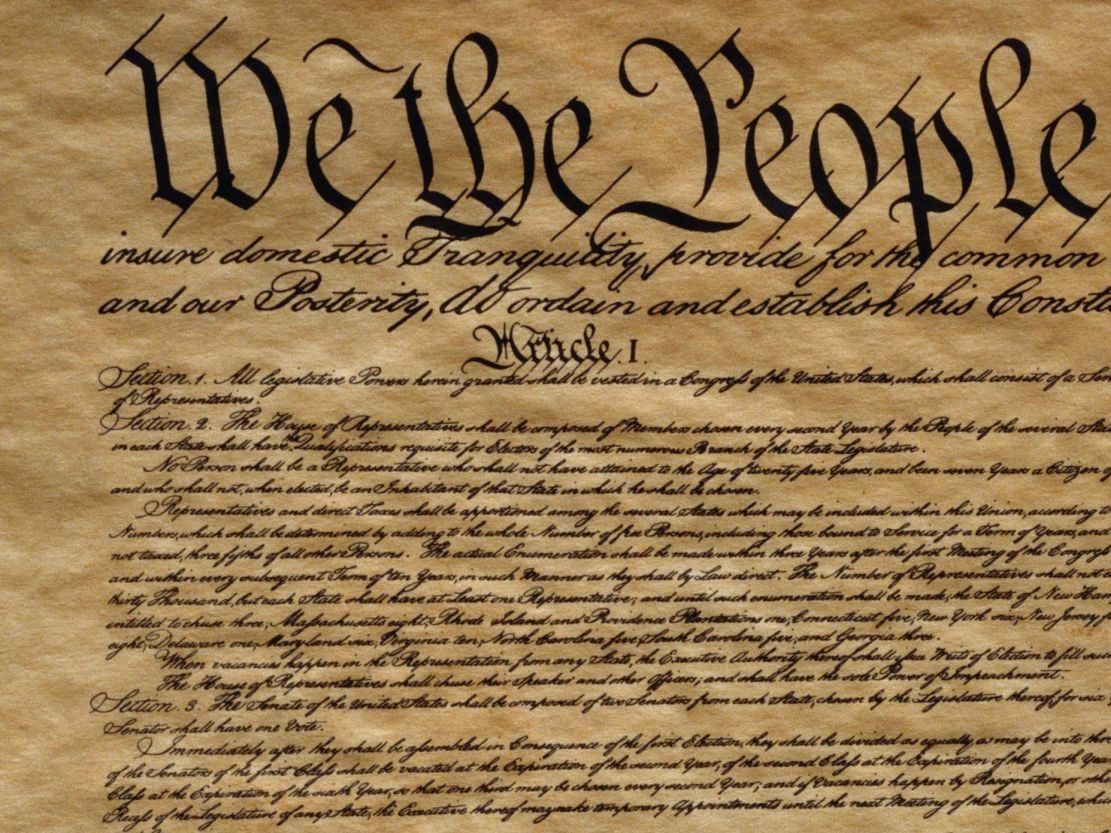 We the People
insure domestic Tranquility, provide for the common
and our Posterity, do ordain and establish this Const
Article. I.
Section. 1. All legislative Powers herein granted shall be vested in a Congress of the United States, which shall consist of a Sen
of Representatives.
Section. 2. The House of Representatives shall be composed of Members chosen every second Year by the People of the several Sta
in each State shall have the Qualifications requisite for Electors of the most numerous Branch of the State Legislature.
No Person shall be a Representative who shall not have attained to the Age of twenty five Years, and been seven Years a Citizen of
and who shall not, when elected, be an Inhabitant of that State in which he shall be chosen.
Representatives and direct Taxes shall be apportioned among the several States which may be included within this Union, according to
Numbers, which shall be determined by adding to the whole Number of free Persons, including those bound to Service for a Term of Years, and
not taxed, three fifths of all other Persons. The actual Enumeration shall be made within three Years after the first Meeting of the Congress
and within every subsequent Term of ten Years, in such Manner as they shall by Law direct. The Number of Representatives shall not e
thirty Thousand, but each State shall have at Least one Representative; and until such enumeration shall be made, the State of New Ham
entitled to chuse three, Massachusetts eight, Rhode Island and Providence Plantations one, Connecticut five, New York six, New Jersey f
eight, Delaware one, Maryland six, Virginia ten, North Carolina five, South Carolina five, and Georgia three.
When vacancies happen in the Representation from any State, the Executive Authority thereof shall issue Writs of Election to fill suc
The House of Representatives shall chuse their Speaker and other Officers; and shall have the sole Power of Impeachment.
Section. 3. The Senate of the United States shall be composed of two Senators from each State, chosen by the Legislature thereof, for six
Senator shall have one Vote.
Immediately after they shall be assembled in Consequence of the first Election, they shall be divided as equally as may be into thre
of the Senators of the first Class shall be vacated at the Expiration of the second Year, of the second Class at the Expiration of the fourth Year
Class at the Expiration of the sixth Year, so that one third may be chosen every second Year; and if Vacancies happen by Resignation, or othe
Recess of the Legislature of any State, the Executive thereof may make temporary Appointments until the next Meeting of the Legislature, whic